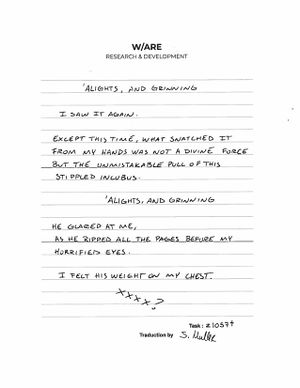 W/ARE
RESEARCH & DEVELOPMENT
'ALIGHTS, AND GRINNING
I SAW IT AGAIN.
EXCEPT THIS TIME, WHAT SNATCHED IT
FROM MY HANDS WAS NOT A DIVINE FORCE
BUT THE UNMISTAKABLE PULL OF THIS
STIPPLED INCUBUS.
'ALIGHTS, AND GRINNING
HE GLARED AT ME,
AS HE RIPPED ALL THE PAGES BEFORE MY
HORRIFIED EYES.
I FELT HIS WEIGHT ON MY CHEST.
XXXX?
Task:
Traduction by S.